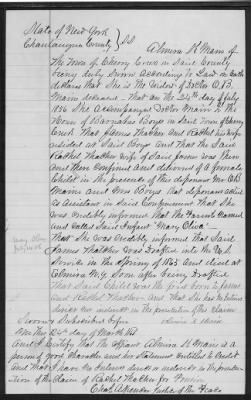 State of New York
Chautauqua County } SS
Almira H. Mann of
the Town of Cherry Creek in said County
being duly sworn according to Law on oath
declares that She is the Widow of Doctor O.B.
Mann deceased - that on the 24th day of July
1856 She accompanied Doctor Mann to the
House of Barnabas Boys in said Town of Cherry
Creek that James Thatcher and Rachel his wife
resided at said Boys and that the said
Rachel Thatcher wife of said James was then
and there confined and delivered of a female
Child in the presence of the deponent
Mann and Mrs Boys that deponent acted
as assistant in said Confinement that She
was credibly informed that the Parents Named
and Called said Infant "Mary Olive"
That She was credibly informed that said
James Thatcher was Drafted into the U.S.
Service in the Spring of 1865 and died at
Elmira N.Y. soon after being Drafted
That said Child was the first born to James
and Rachel Thatcher and that She has no interest
direct nor in the prosecution of the Claim
Almira H. Mann
Sworn & Subscribed before
me this day of March
And I Certify that the affiant Almira H Mann is a
person of good Character and her Statement Entitled to Credit
and that I have no interest direct or indirect in the prosecu-
tion of the Claim of Rachel Thatcher for Pension
Justice of the Peace